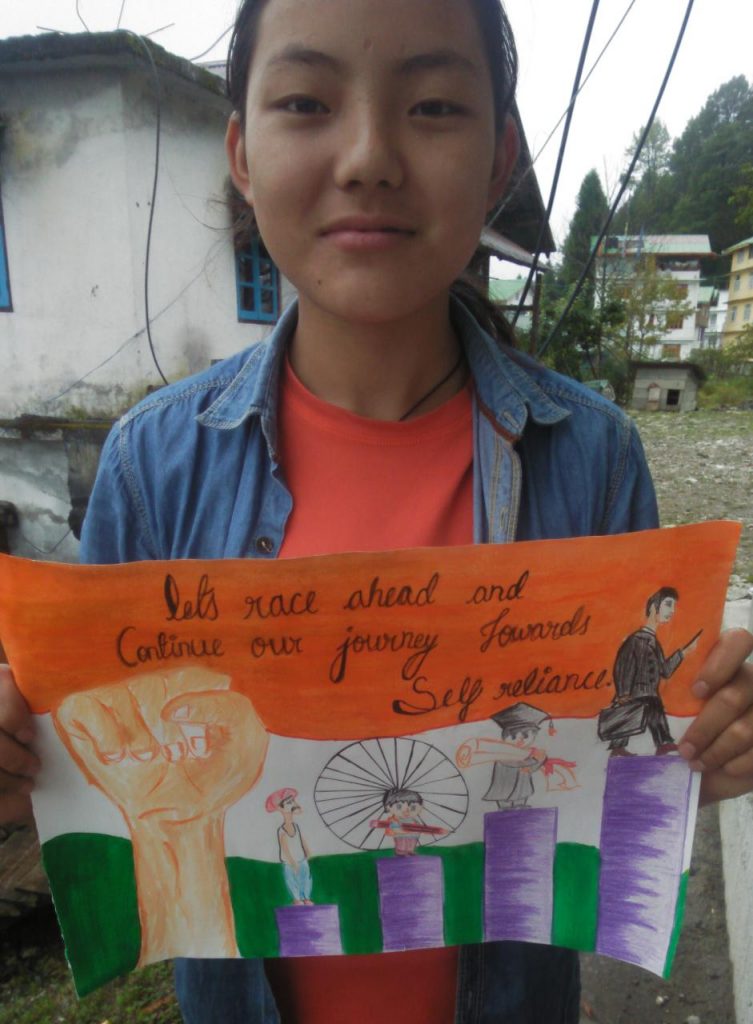 Let's race ahead and
Continue our journey Towards
Self reliance.